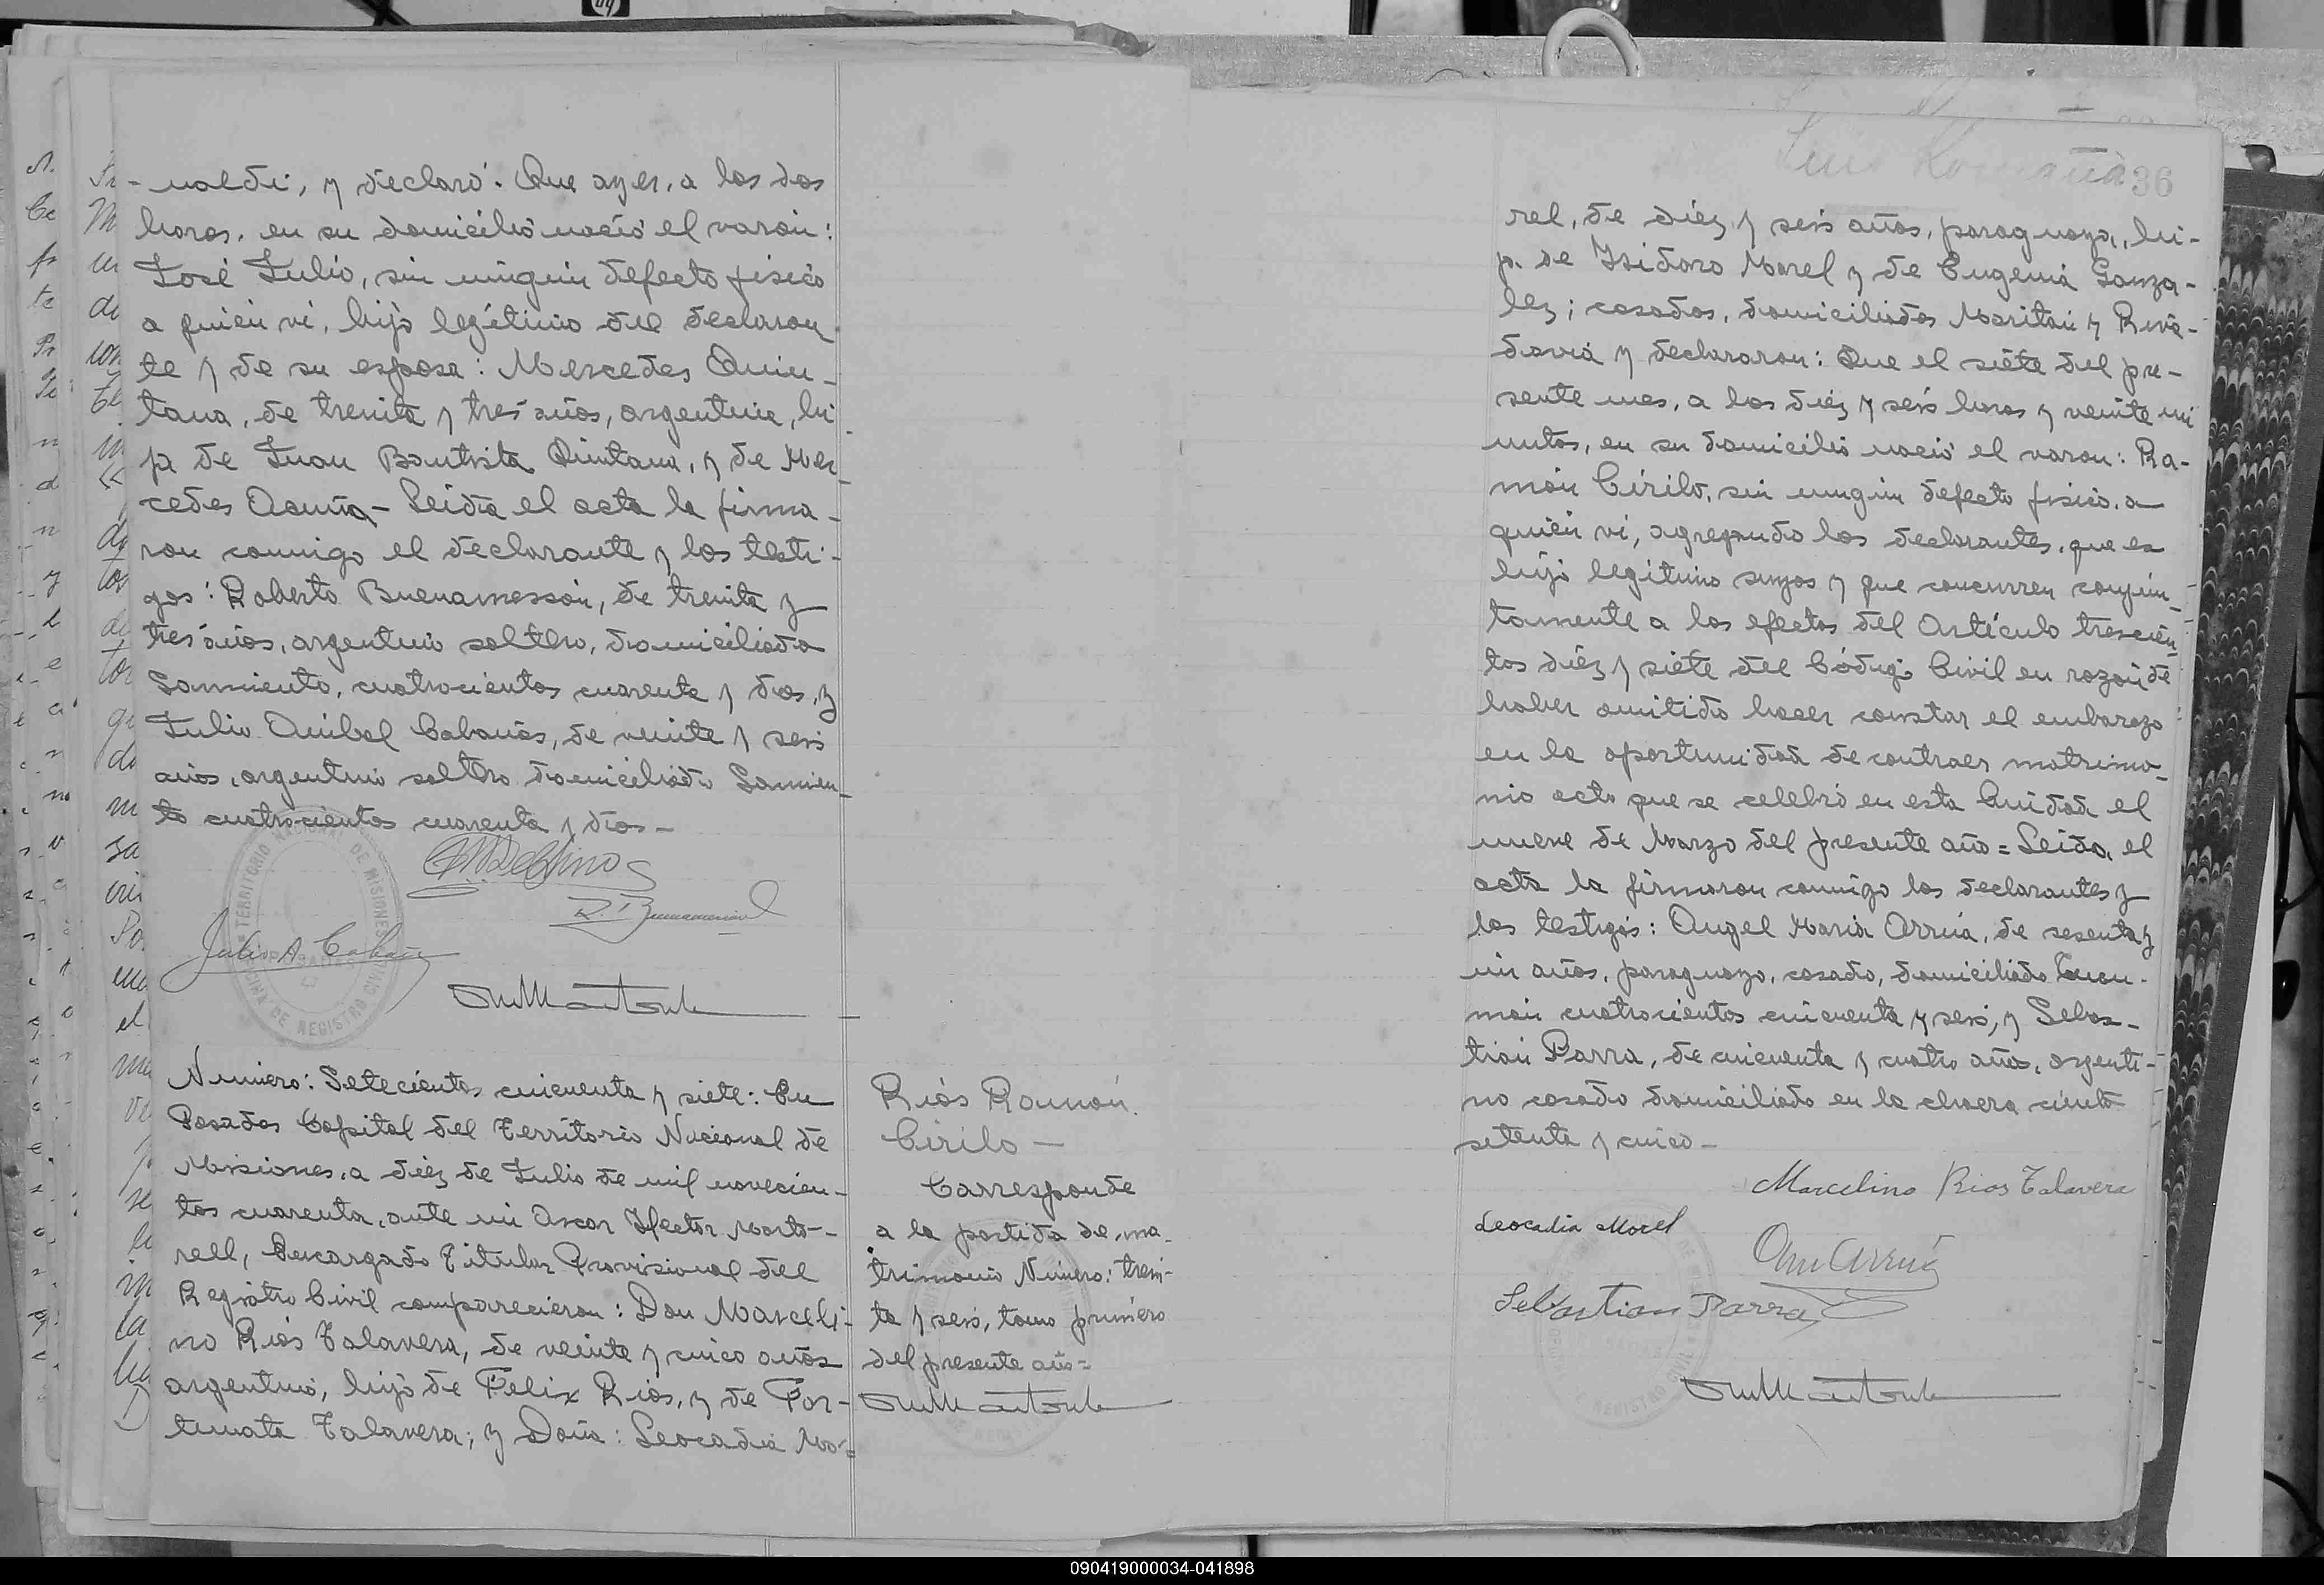 -naldi, y declaró: Que ayer, a las dos
horas, en su domicilio nació el varón:
José Julio, sin ningún defecto fisico
a quien vi, hijo legítimo del declaran-
te y de su esposa: Mercedes Quin-
tana, de treinta y tres años, argentina, hi-
ja de Juan Bautista Quintana, y de Mer-
cedes Acuña- Leida el acta la firma-
ron conmigo el declarante y los testi-
gos: Roberto Buenamesson, de treinta y
tres años, argentino soltero, domiciliado
Sarmiento, cuatrocientos cuarenta y dos, y
Julio Anibal Cabañas, de veinte y seis
años, argentino soltero domiciliado Sarmien-
to cuatrocientos cuarenta y dos-
TERRITORIO NACIONAL DE MISIONES
OFICINA DE REGISTRO CIVIL
POSADAS
Julio A. Cabañas
Número: Setecientos cincuenta y siete: En
Posadas Capital del Territorio Nacional de
Misiones, a diéz de Julio de mil novecien-
tos cuarenta, ante mi Oscar Hector Marto-
rell, Encargado Titular Provisional del
Registro Civil comparecieron: Don Marceli-
no Rios Talavera, de veinte y cinco años
argentino, hijo de Felix Rios, y de For-
tunata Talavera; y Doña: Leocadia Mo=
Rios Ramón
Cirilo —
Corresponde
a la partida de ma-
trimonio Número: trein-
ta y seis, tomo primero
del presente año=
36
rel, de diéz y seis años, paraguaya, hi-
ja de Isidoro Morel y de Eugenia Gonza-
lez; casados, domiciliados Maritain y Riva-
davia y declararon: Que el siete del pre-
sente mes, a las diéz y seis horas y veinte mi
nutos, en su domicilio nació el varon: Ra-
món Cirilo, sin ningún defecto fisico, a
quien vi, agregando los declarantes, que es
hijo legitimo suyos y que concurren conjun-
tamente a los efectos del Artículo trescien-
tos diéz y siete del Código Civil en razón de
haber omitido hacer constar el embarazo
en la oportunidad de contraer matrimo-
nio acto que se celebró en esta Ciudad el
nueve de Marzo del presente año= Leida, el
acta la firmaron conmigo los declarantes y
los testigos: Angel Maria Arrúa, de sesenta y
un años, paraguayo, casado, domiciliado Tucu-
mán cuatrocientos cincuenta y seis, y Sebas-
tián Parra, de cincuenta y cuatro años, argenti-
no casado domiciliado en la chacra ciento
setenta y cinco-
Marcelino Rios Talavera
Leocadia Morel
Sebastian Parra
090419000034-041898